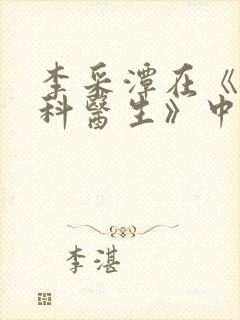 李采潭在《
科醫生》中
李湛